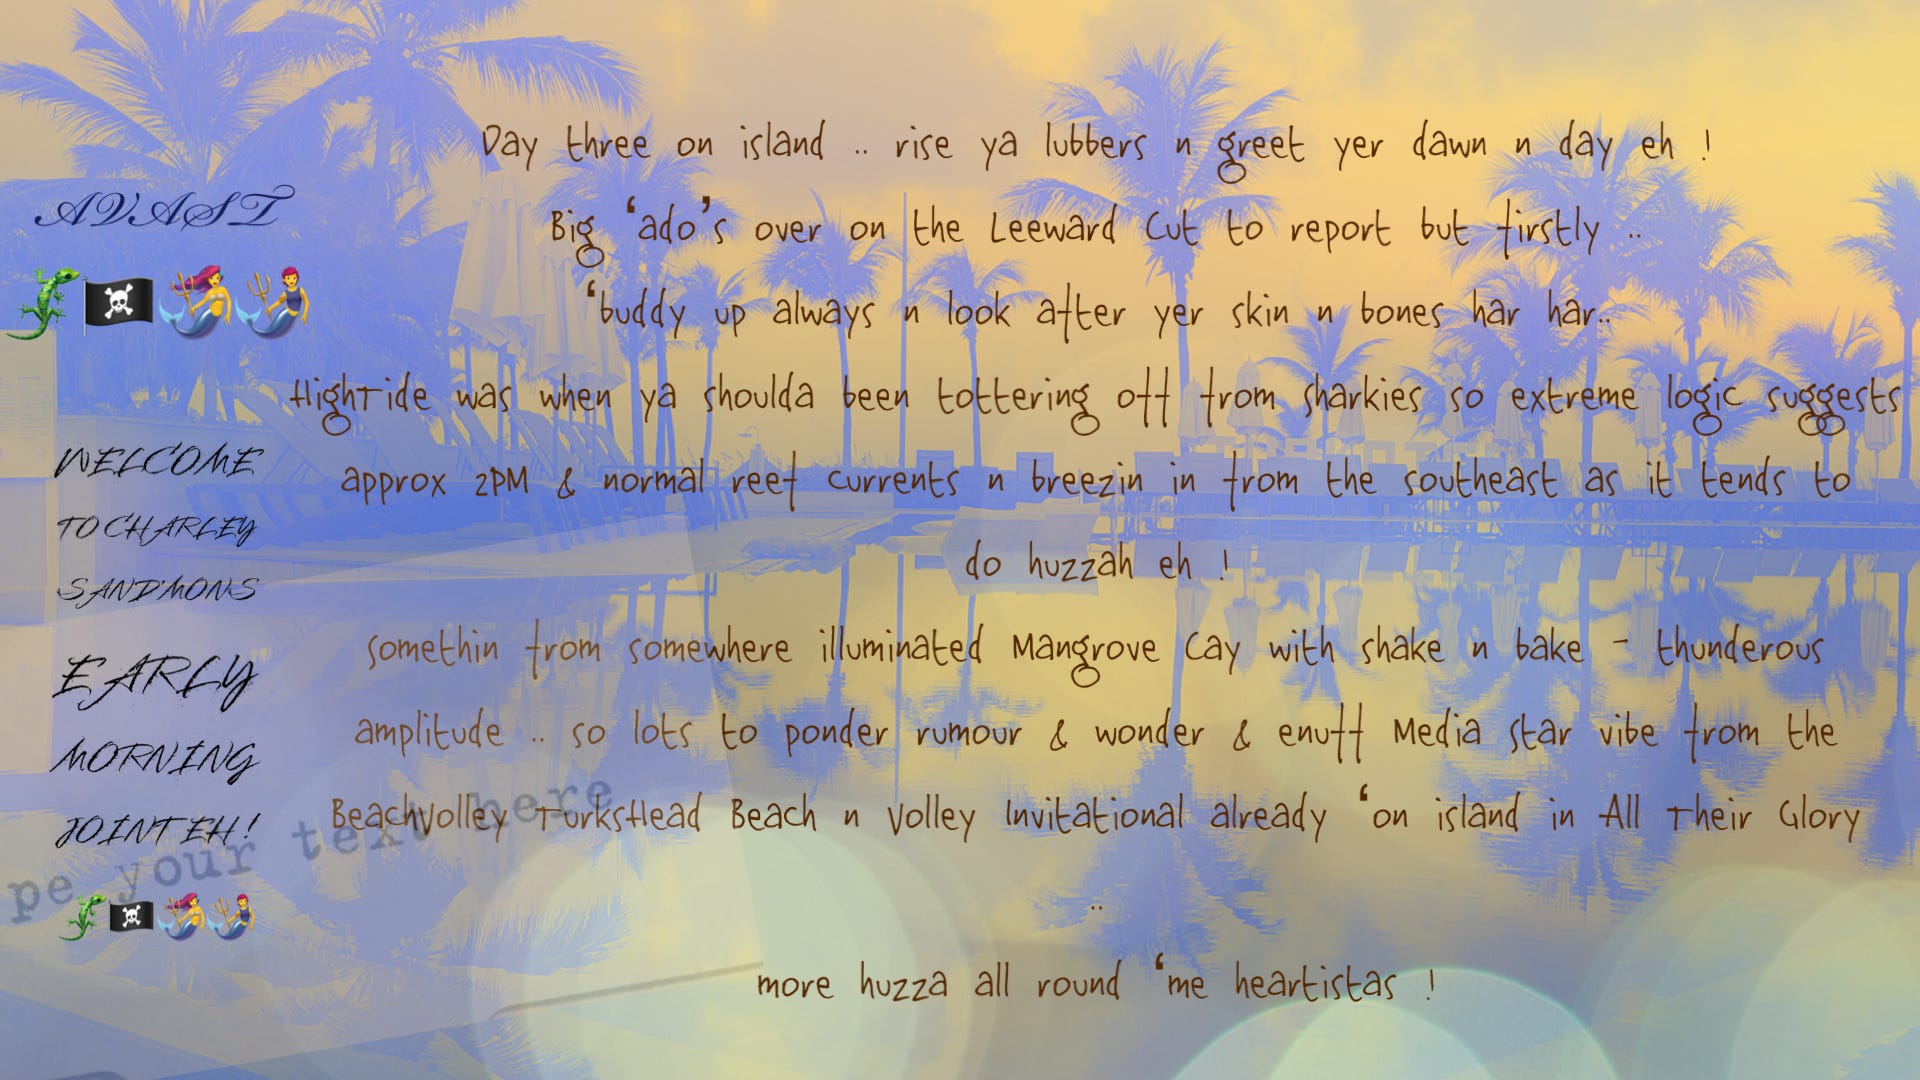 AVAST
🦎🏴‍☠️🧜‍♀️🧜‍♂️
WELCOME
TO CHARLEY
SAND'MONS
EARLY
MORNING
JOINT EH!
🦎🏴‍☠️🧜‍♀️🧜‍♂️
Day three on island .. rise ya lubbers n greet yer dawn n day eh !
Big 'ado's over on the Leeward Cut to report but firstly ..
'buddy up always n look after yer skin n bones har har..
HighTide was when ya shoulda been tottering off from sharkies so extreme logic suggests
approx 2PM & normal reef currents n breezin in from the southeast as it tends to
do huzzah eh !
somethin from somewhere illuminated Mangrove Cay with shake n bake - thunderous
amplitude .. so lots to ponder rumour & wonder & enuff Media Star vibe from the
BeachVolley TurksHead Beach n Volley Invitational already 'on island in All Their Glory
..
more huzza all round 'me heartistas !
pe your text here